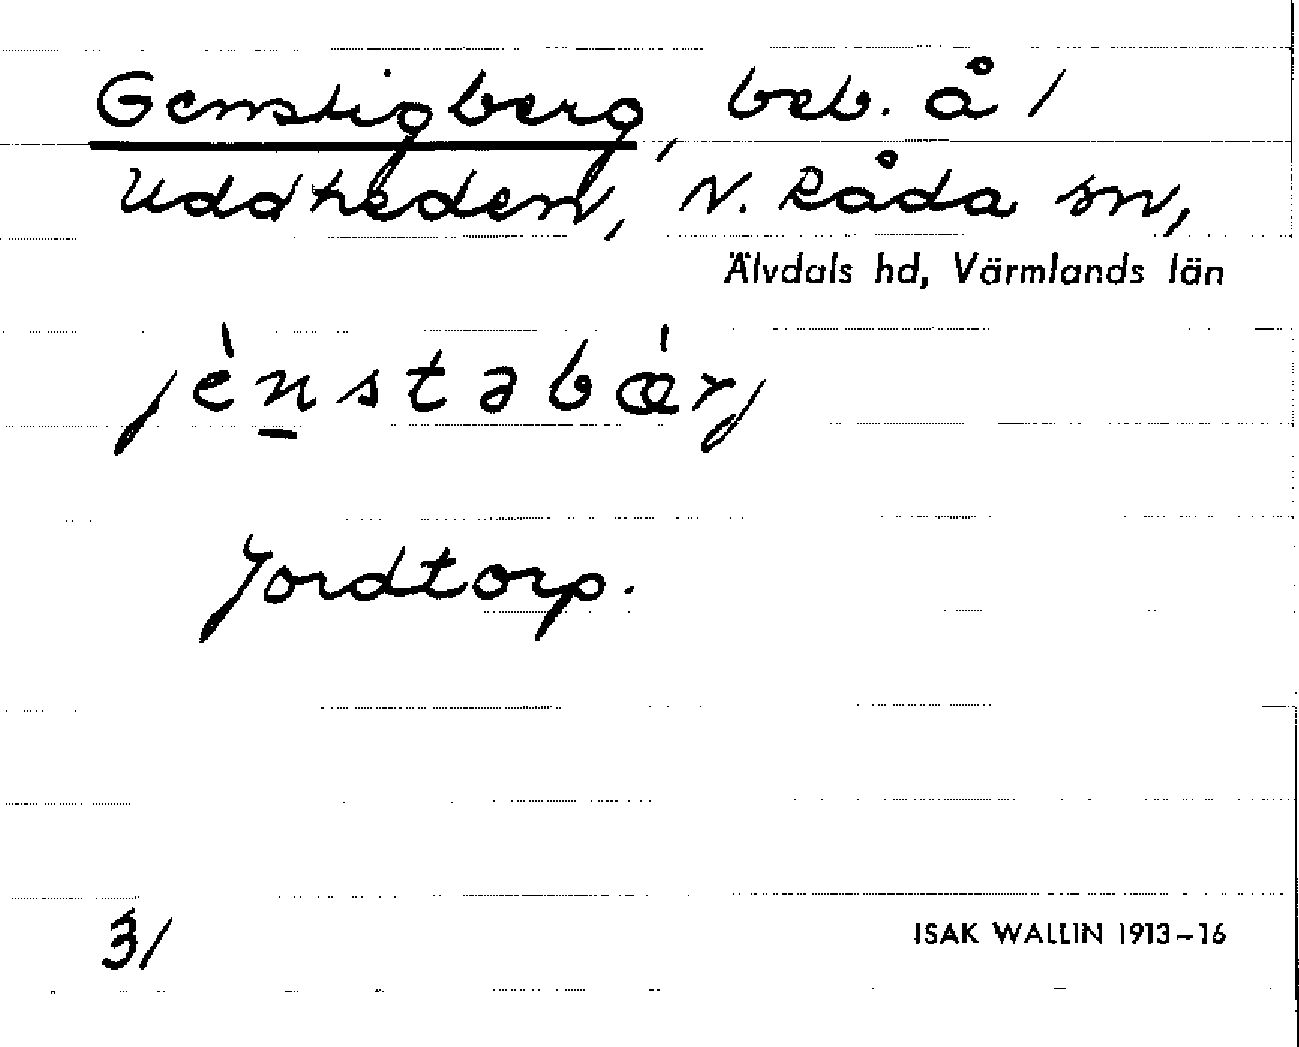 Genstigberg, beb. å /
Uddheden, N. Råda sn,
Älvdals hd, Värmlands län
jènstabæ̀rj
Jordtorp.
31
ISAK WALLIN 1913-16